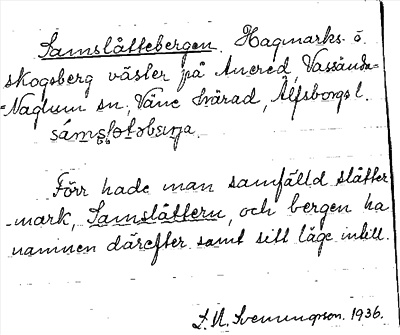 Samslåttebergen. Hagmarks- o
skogsberg väster på Anered, Vassända=
=Naglum sn, Väne härad, Älfsborgs l.
sámslòtəbærja.
Förr hade man samfälld slåtter
-mark, Samslåttern, och bergen ha
namnen därefter samt sitt läge intill.
L. N. Svenungson. 1936.